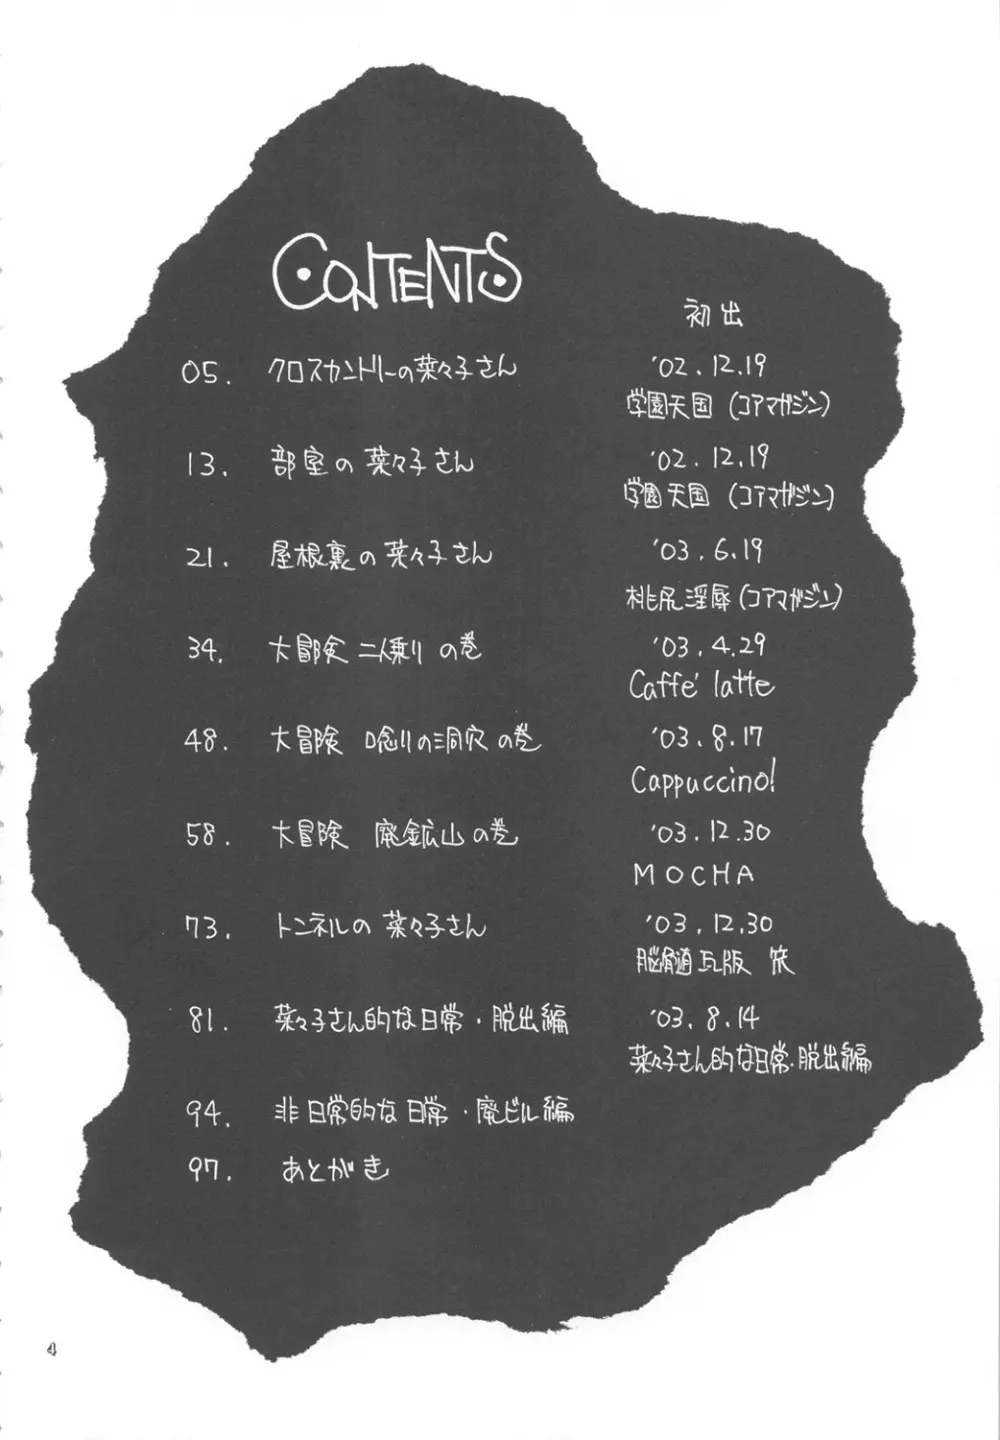 CONTENTS
初出
05. クロスカントリーの菜々子さん '02.12.19
学園天国 (コアマガジン)
13. 部室の菜々子さん '02.12.19
学園天国 (コアマガジン)
21. 屋根裏の菜々子さん '03.6.19
桃尻淫辱 (コアマガジン)
34. 大冒険 二人乗り の巻 '03.4.29
Caffe' latte
48. 大冒険 唸りの洞穴 の巻 '03.8.17
Cappuccino!
58. 大冒険 廃鉱山の巻 '03.12.30
MOCHA
73. トンネルの菜々子さん '03.12.30
脳髄瓦版 笊
81. 菜々子さん的な日常・脱出編 '03.8.14
菜々子さん的な日常・脱出編
94. 非日常的な日常・廃ビル編
97. あとがき
4